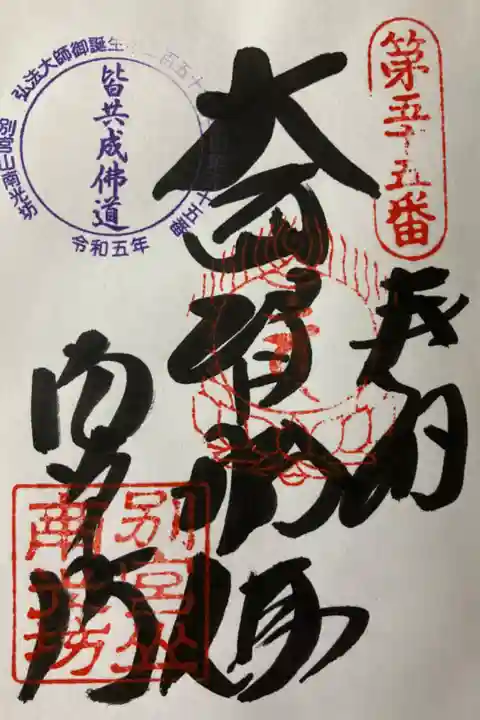 第五十五番
奉納
大通智勝佛
南光坊
別宮山
南光坊
弘法大師御誕生
別宮山南光坊
皆共成佛道
令和五年